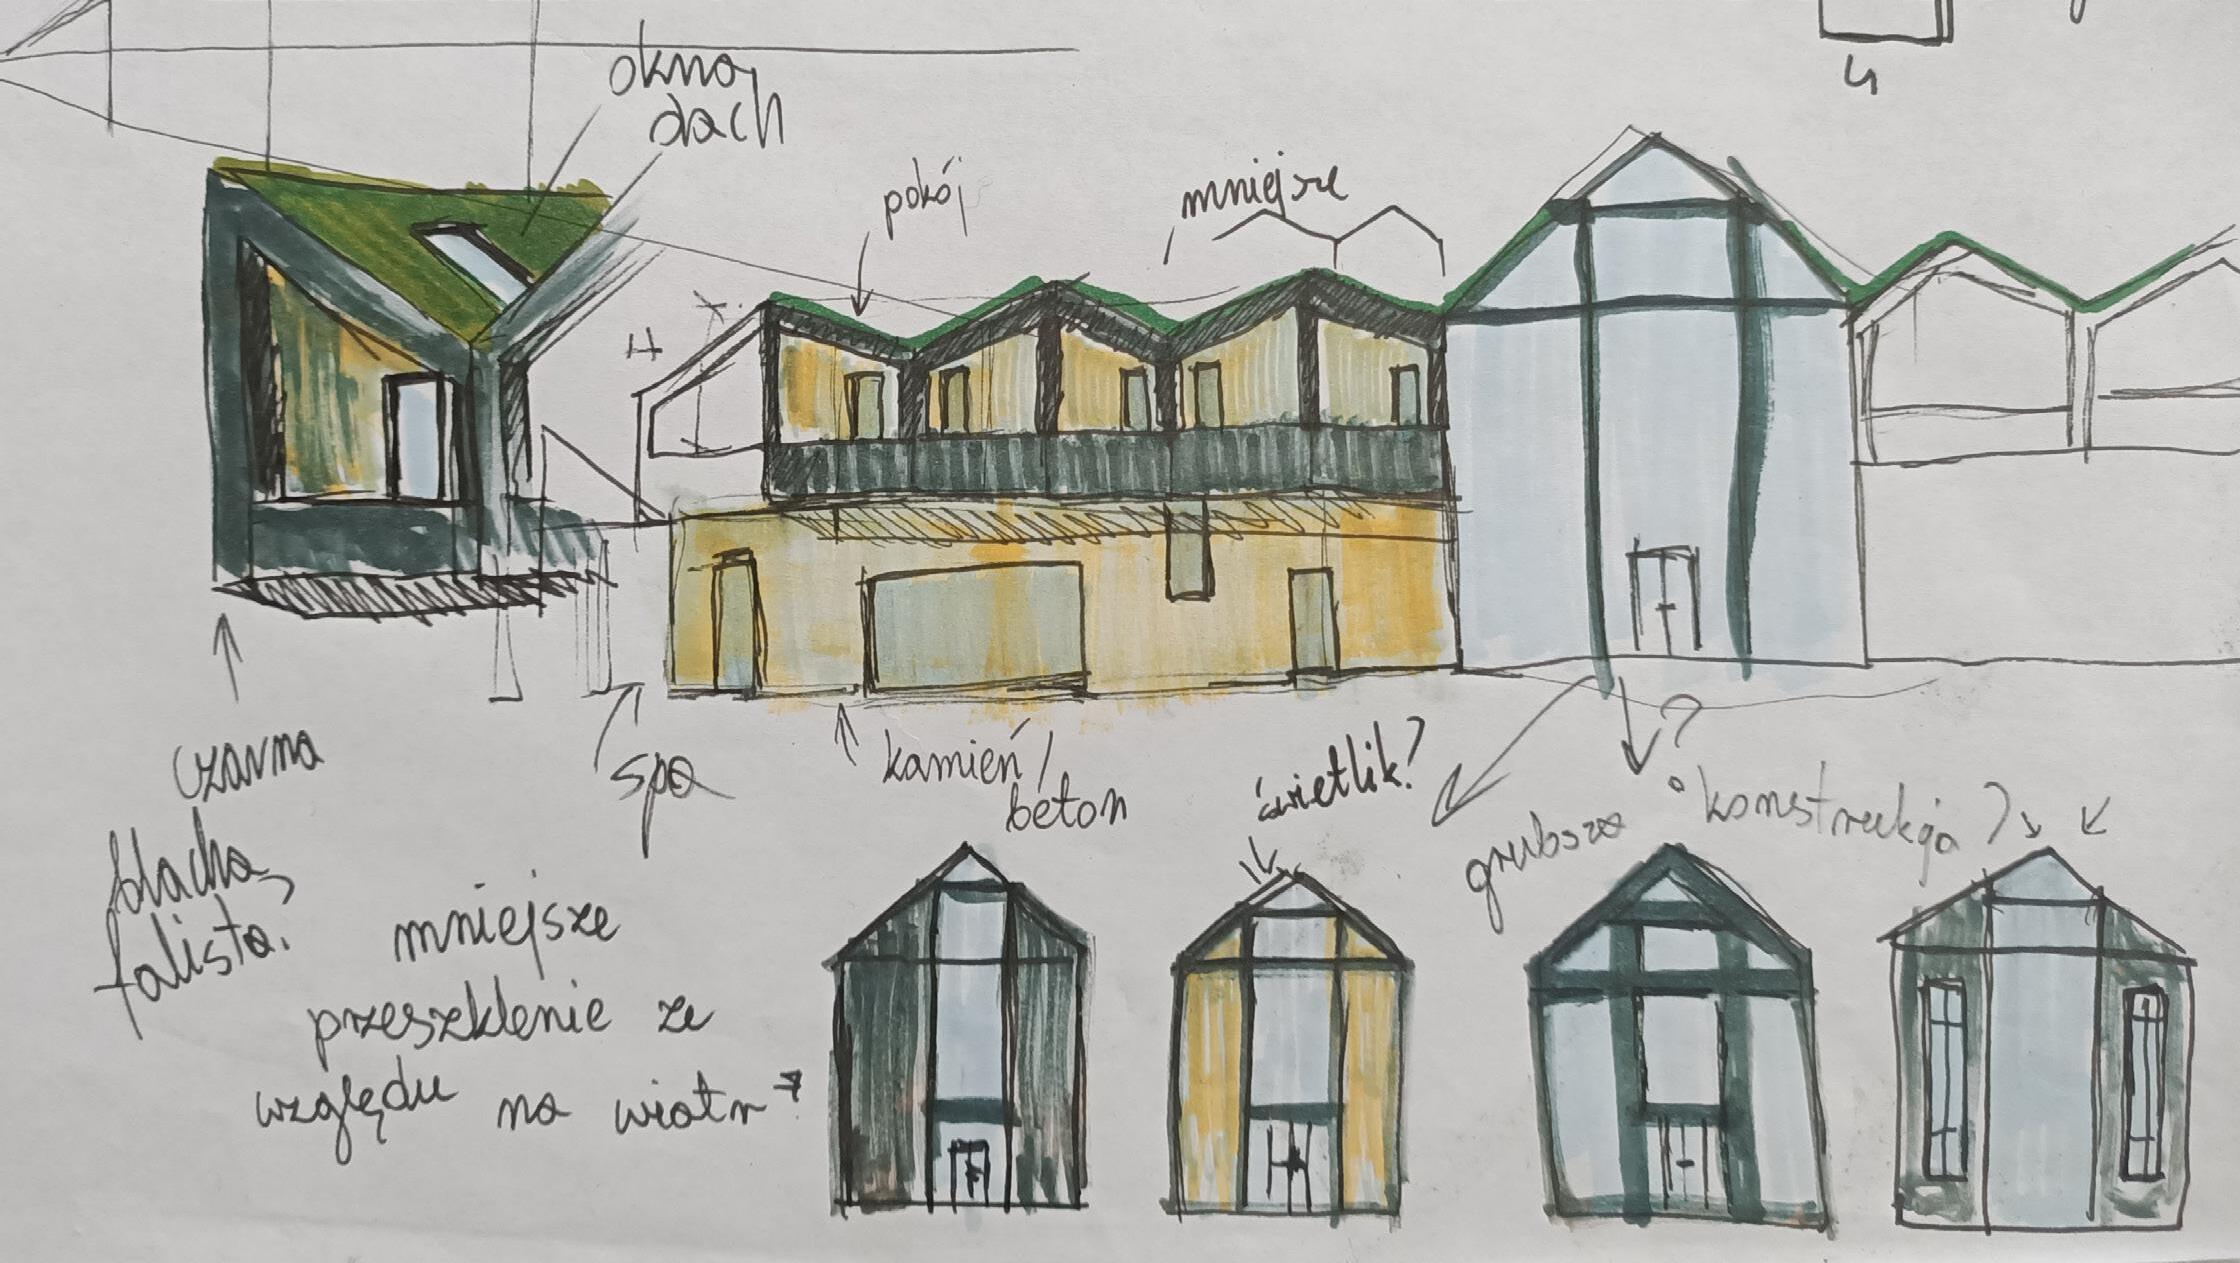 4
okno
dach
pokój
mniejsze
H
X
czarna
blacha
falista?
spa
kamień/
beton
świetlik?
?
grubsza konstrukcja?
mniejsze
przeszklenie ze
względu na wiatr?